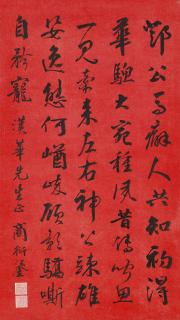 鄧公馬癖人共知初得
華驄大宛種夙昔傳聞思
一見牽來左右神皆竦雄
姿逸態何崷崒顧影驕嘶
自矜寵 漢華先生正 商衍鎏